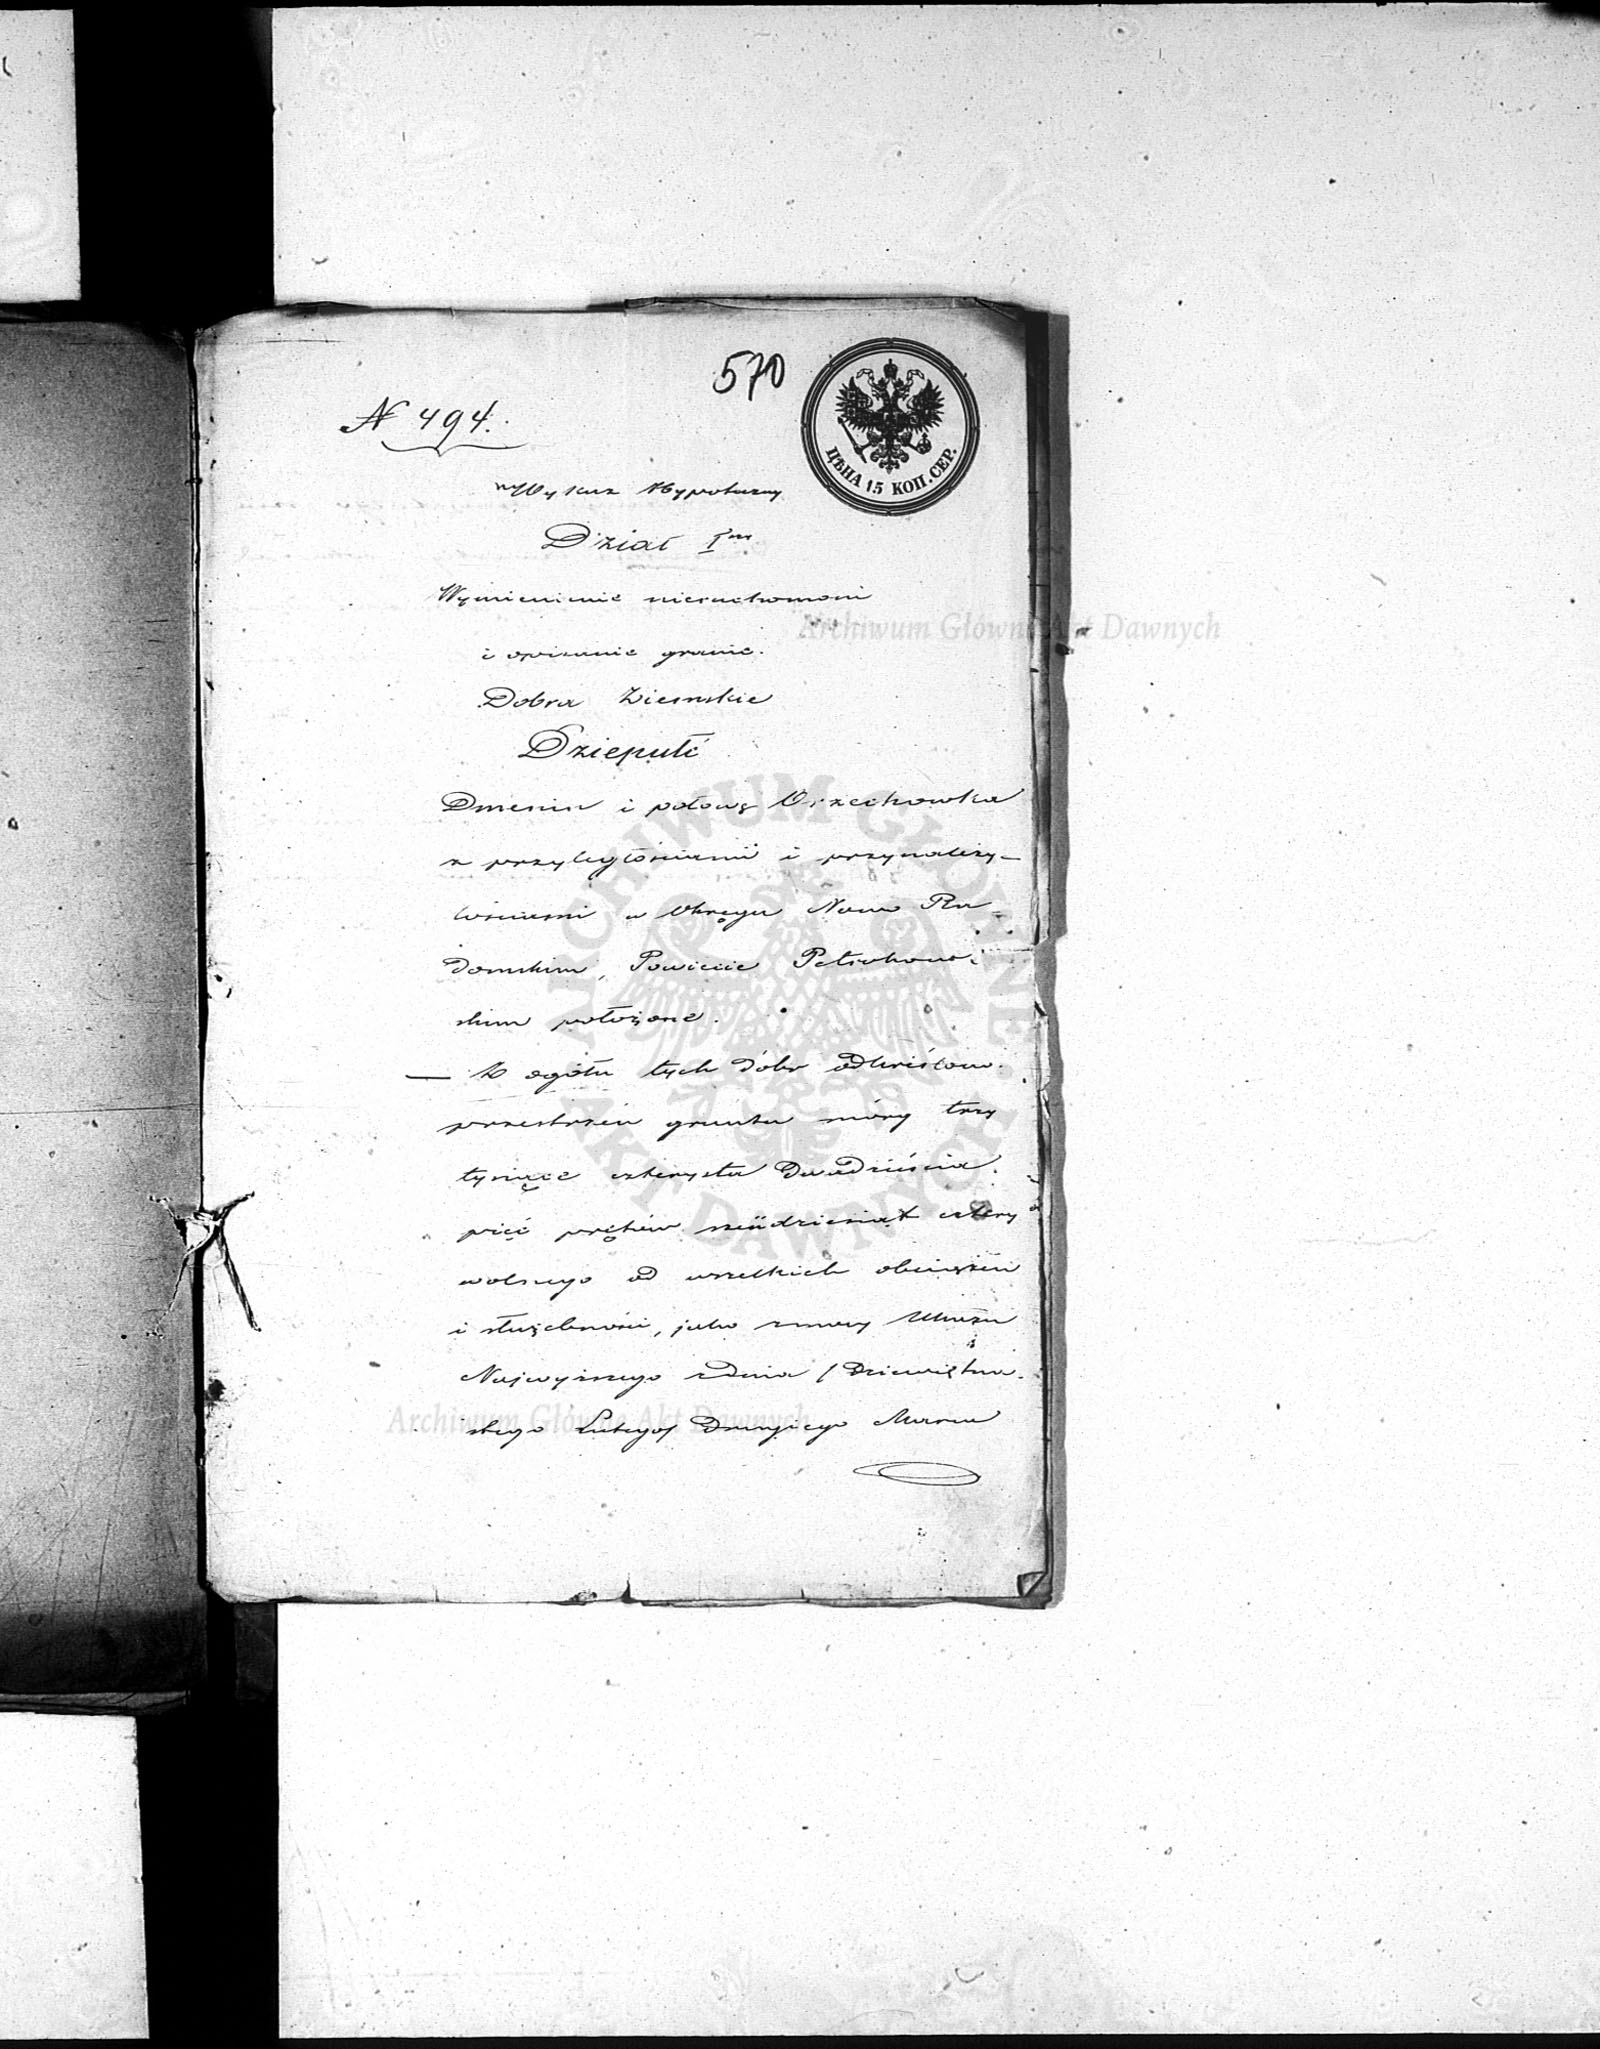 570
N 494.
ЦѢНА 15 КОП. СЕР.
Wykaz Hypoteczny
Dział I
Wymienienie nieruchomości
i opisanie granic.
Dobra Ziemskie
Dziepulć
Dmenin i połowę Orzechowka
z przyległościami i przynależy-
tościami w Okręgu Nowo Ra-
domskim, Powiecie Petrokow-
skim położone.
— Z ogółu tych dóbr odkreślono
przestrzeń gruntu mórg trzy
tysiące czterysta dwadzieścia
pięć prętów sześćdziesiąt cztery
wolnego od wszelkich obciążeń
i służebności, jako z mocy Ukazu
Najwyższego z dnia / Dziewiętna-
stego Lutego / Drugiego Marca
ARCHIWUM GŁÓWNE AKT DAWNYCH
Archiwum Główne Akt Dawnych
Archiwum Główne Akt Dawnych